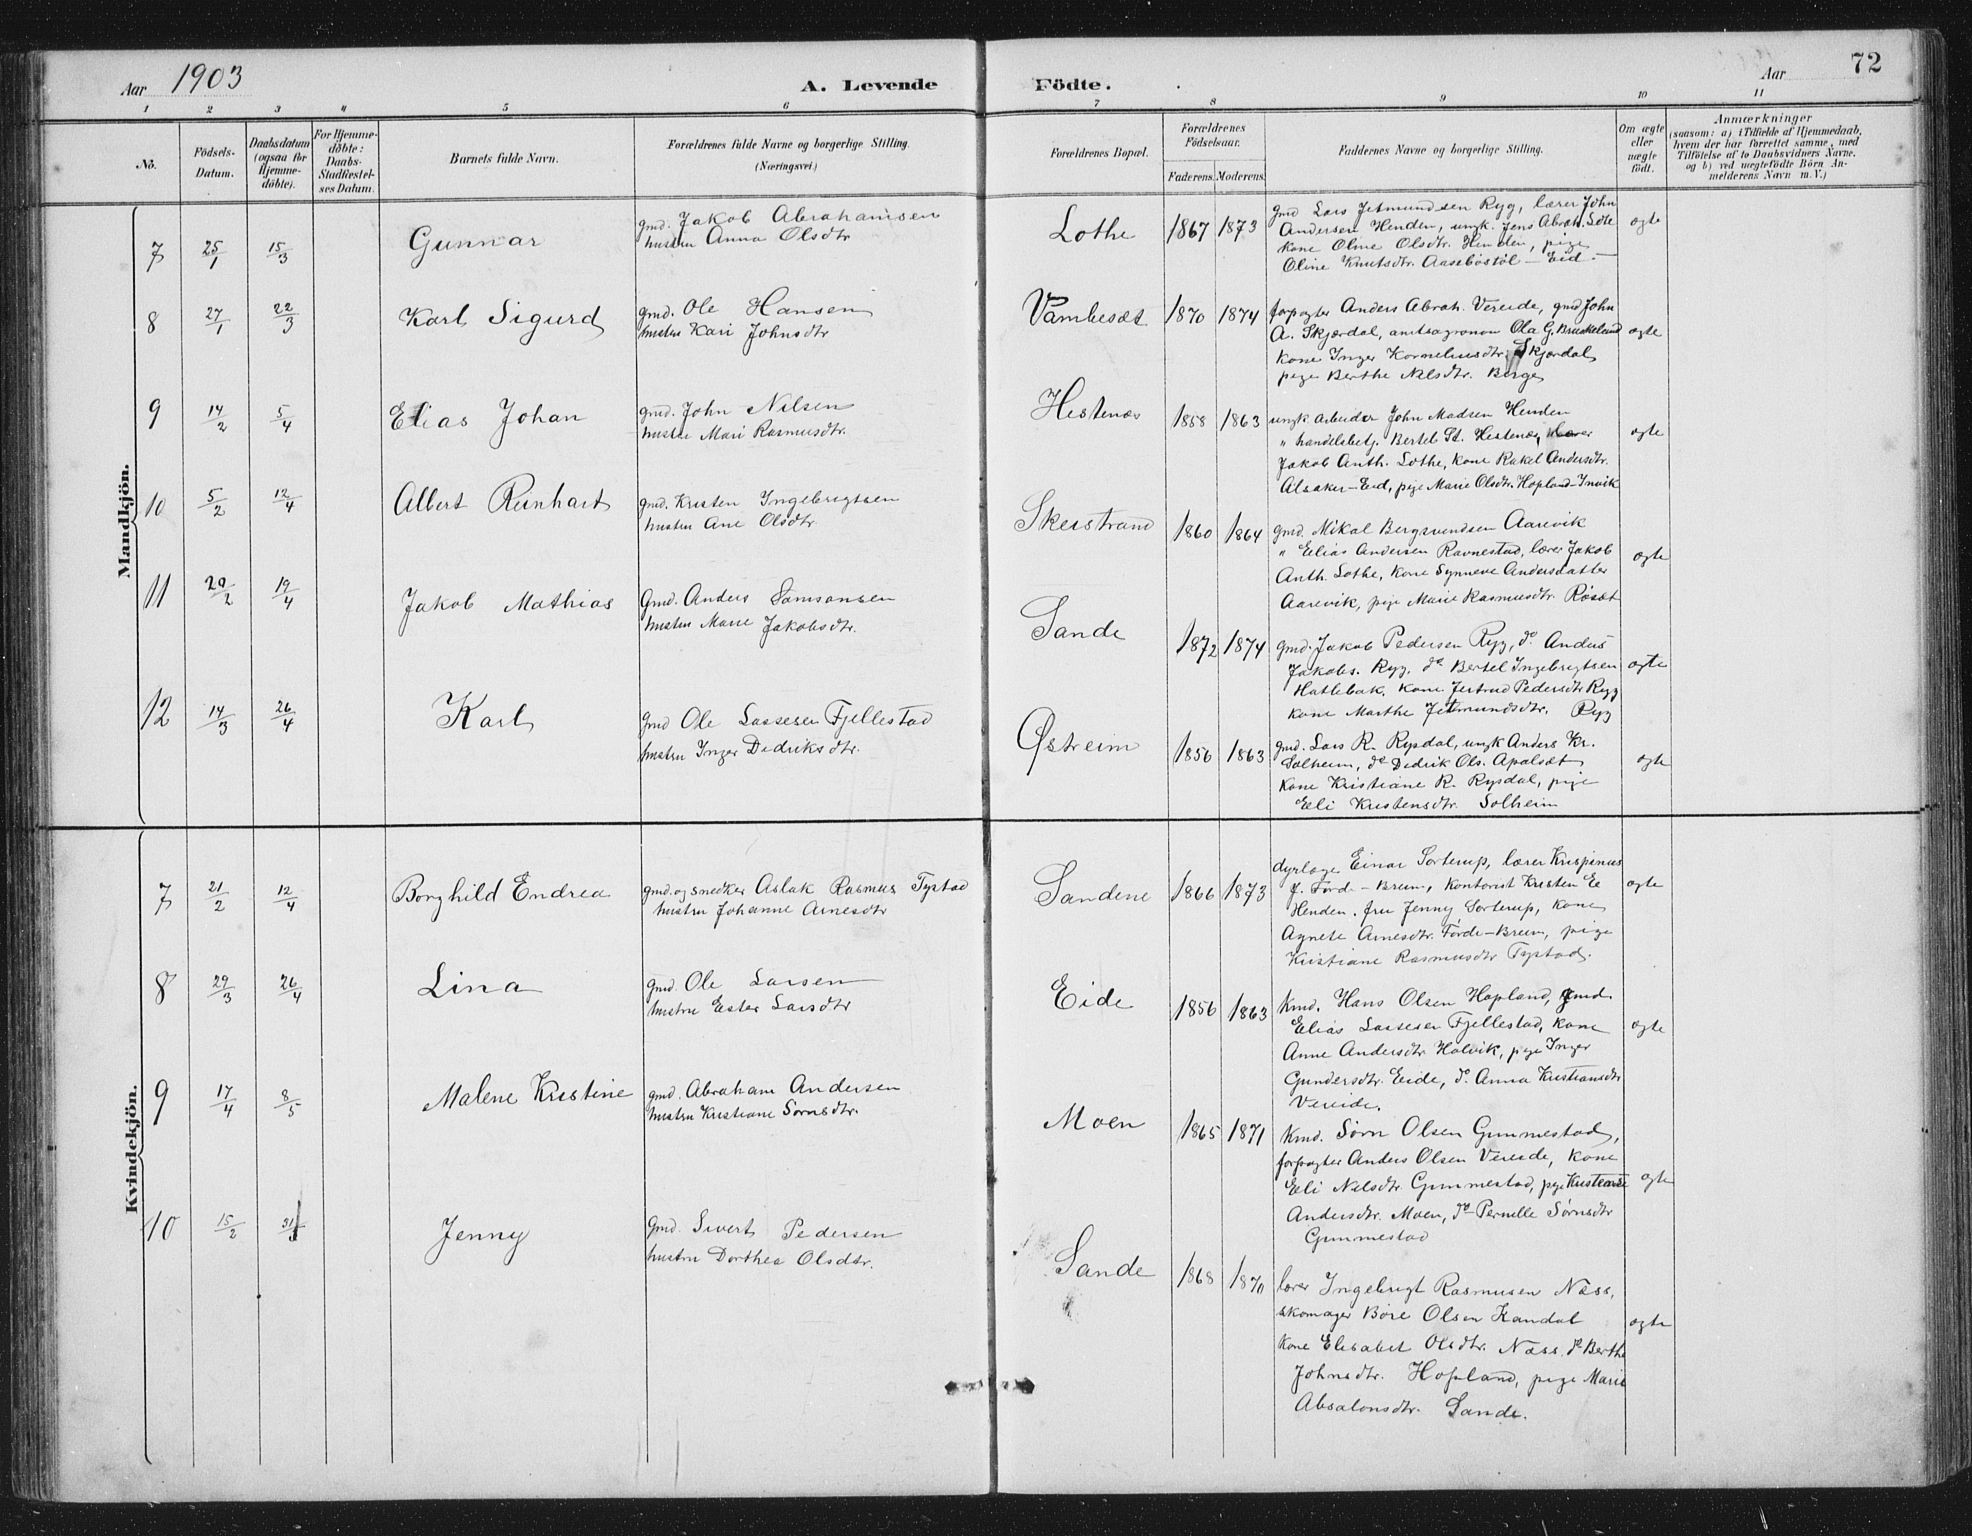 Aar 1903
A. Levende
Födte.
Aar
72
1 2 3 4 5 6 7 8 9 10 11
No.
Födsels-
Datum.
Daabsdatum
(ogsaa for
Hjemme-
döbte).
For Hjemme-
döbte:
Daabs-
Stadfæstel-
ses Datum.
Barnets fulde Navn.
Forældrenes fulde Navne og borgerlige Stilling.
(Næringsvei.)
Forældrenes Bopæl.
Forældrenes
Födselsaar.
Faderens. Moderens.
Faddernes Navne og borgerlige Stilling.
Om ægte
eller
uægte
födt.
Anmærkninger
(saasom: a) i Tilfælde af Hjemmedaab,
hvem der har forrettet samme, med
Tilföielse af to Daabsvidners Navne,
og b) ved uægtefödte Börn An-
melderens Navn m. V.)
Mandkjön.
7 25/1 15/3 Gunnar
gmd. Jakob Abrahamsen
hustru Anna Olsdtr
Lothe 1867 1873
gmd Lars Jetmundsen Ryg, lærer John
Andersen Henden, ungk. Jens Abrah. Lote
kone Oline Olsdtr. Henden, pige
Oline Knutsdtr. Aasebøstøl - Eid -
ægte
8 27/1 22/3 Karl Sigurd
gmd. Ole Hansen
hustru Kari Johnsdtr
Vambesæt 1870 1874
forpagter Anders Abrah. Vereide, gmd John
A. Skjørdal, amtsagronom Ola G. Bruckeland
kone Inger Korneliusdtr. Skjørdal
pige Berthe Nilsdtr. Berge
ægte
9 14/2 5/4 Elias Johan
gmd. John Nilsen
hustru Mari Rasmusdtr.
Hestenæs 1858 1863
ungk arbeider John Madsen Henden
" handelsbetj. Bertel St. Hestenæs, lærer
Jakob Anth. Lothe, kone Rakel Andersdtr.
Alsaker - Eid, pige Marie Olsdtr. Hopland - Invik
ægte
10 5/2 12/4 Albert Reinhart
gmd. Kristen Ingebrigtsen
hustru Ane Olsdtr
Skeistrand 1860 1864
gmd. Mikal Bergsvendsen Aarevik
" Elias Andersen Ravnestad, lærer Jakob
Anth. Lothe, kone Synneve Andersdatter
Aarevik, pige Marie Rasmusdtr. Røsæt
ægte
11 20/2 19/4 Jakob Mathias
Gmd. Anders Samsonsen
hustru Marie Jakobsdtr.
Sande 1872 1874
gmd. Jakob Pedersen Ryg, do Anders
Jakobs. Ryg, do Bertel Ingebrigtsen
Hatlebak, kone Jertrud Pedersdtr Ryg
kone Marthe Jetmundsdtr. Ryg
ægte
12 14/3 26/4 Karl
gmd Ole Lassesen Fjellestad
hustru Inger Didriksdtr.
Østreim 1856 1863
gmd. Lars R. Rysdal, ungk Anders Kr.
Solheim, do Didrik Ols. Apalsæt
kone Kristiane R. Rysdal, pige
Eli Kristensdtr. Solheim
ægte
Kvindekjön.
7 21/2 12/4 Borghild Endrea
gmd. og snedker Aslak Rasmus Tystad
hustru Johanne Arnesdtr
Sandene 1866 1873
dyrlæge Einar Sorterup, lærer Krispinus
J. Førde - Breim, kontorist Kristen E
Henden, fru Jenny Sorterup, kone
Agnete Arnesdtr. Førde - Breim, pige
Kristiane Rasmusdtr Tystad.
ægte
8 29/3 26/4 Lina
gmd. Ole Larsen
hustru Ester Larsdtr
Eide 1856 1863
Kmd. Hans Olsen Hopland, gmd.
Elias Lassesen Fjellestad, kone
Anne Andersdtr Holvik, pige Inger
Gundersdtr. Eide, do. Anna Kristiansdtr
Vereide.
ægte
9 17/4 8/5 Malene Kristine
gmd. Abraham Andersen
hustru Kristiane Sørnsdtr.
Moen 1865 1871
Kmd. Sørn Olsen Gimmestad,
forpagter Anders Olsen Vereide, kone
Eli Nilsdtr. Gimmestad, pige Kristense
Andersdtr. Moen, do Pernelle Sørnsdtr
Gimmestad
ægte
10 15/2 31/5 Jenny
gmd. Sivert Pedersen
hustru Dorthea Olsdtr.
Sande 1868 1870
lærer Ingebrigt Rasmusen Næss,
skomager Børe Olsen Kandal
kone Elisabet Olsdtr. Næss. do Berthe
Johnsdtr. Hopland, pige Marie
Absalonsdtr. Sande.
ægte